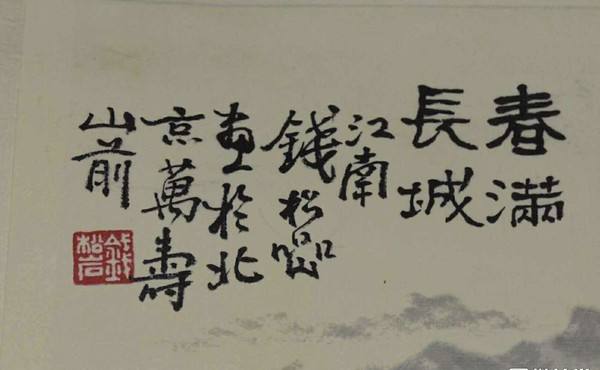 春滿
長城
江南
錢松喦
畫於北
京萬壽
山前
錢松嵒